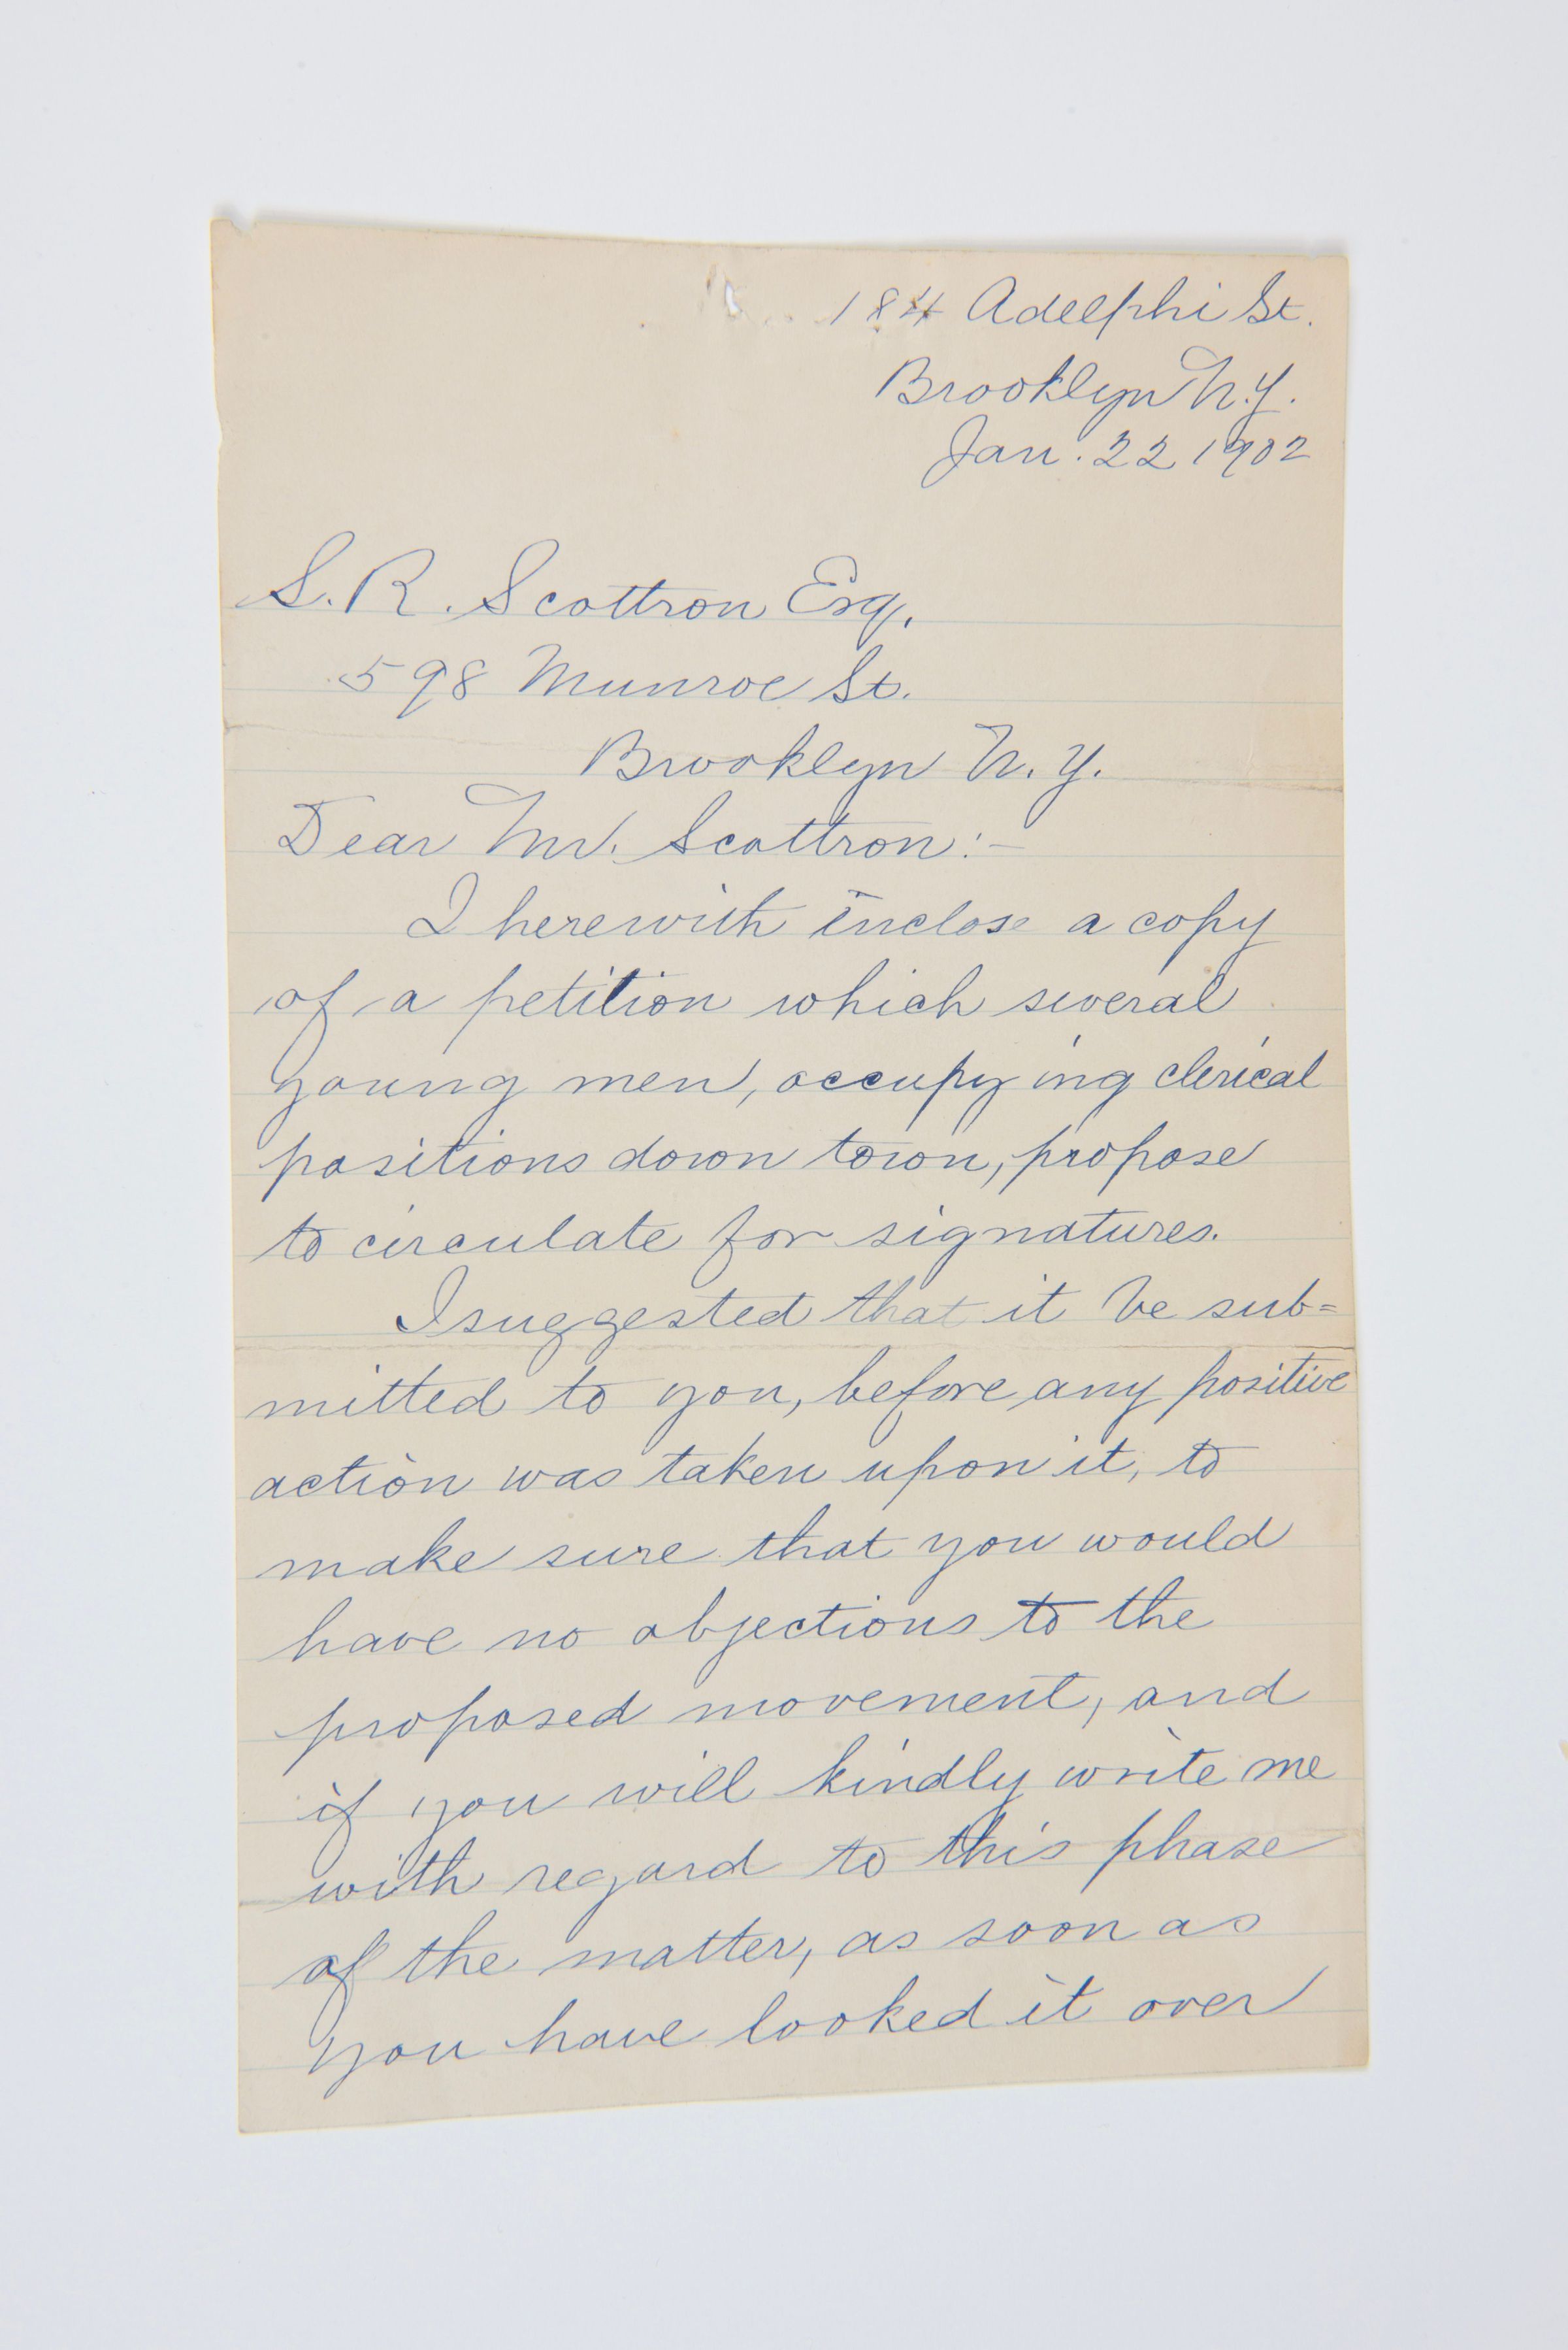 184 Adelphi St.
Brooklyn N.Y.
Jan. 22 1902
S. R. Scottron Esq.
598 Munroe St.
Brooklyn N. Y.
Dear Mr. Scottron:-
I herewith inclose a copy
of a petition which several
young men, occupying clerical
positions down town, propose
to circulate for signatures.
I suggested that it be sub=
mitted to you, before any positive
action was taken upon it, to
make sure that you would
have no objections to the
proposed movement, and
if you will kindly write me
with regard to this phase
of the matter, as soon as
you have looked it over